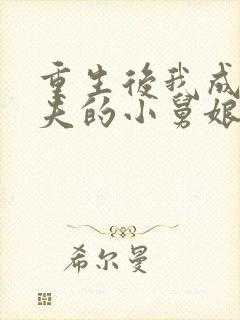 重生後我成
夫的小舅娘
希尔曼